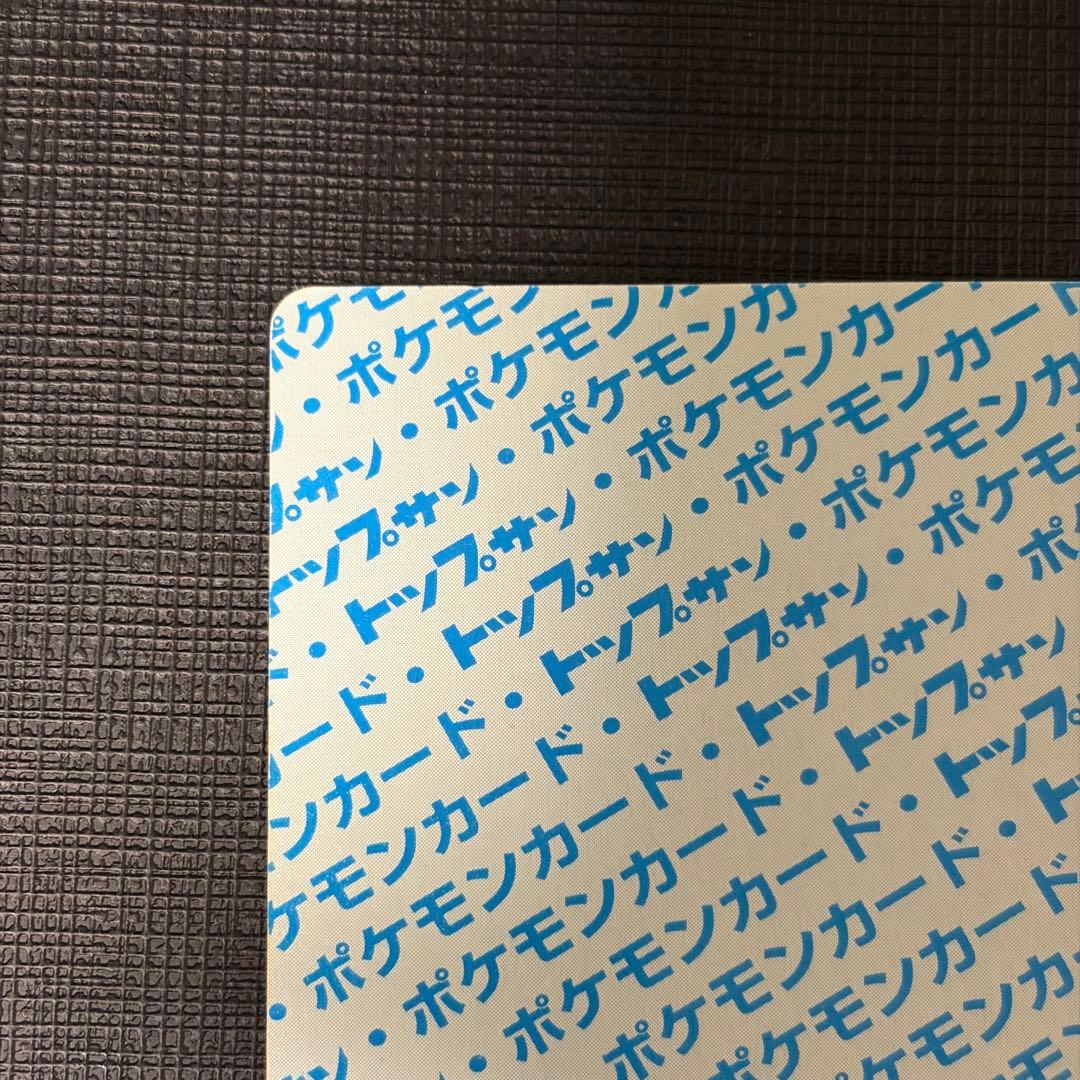 ポケモ
ン・ポケモン
プサン・ポケモンカ
トップサン・ポケモンカー
ド・トップサン・ポケモンカード
ード・トップサン・ポケモンカード
ンカード・トップサン・ポケモンカ
ケモンカード・トップサン・ポケモ
・ポケモンカード・トップサン・ポ
サン・ポケモンカード・トップサン
・ポケモンカード・トップ
ポケモンカード・ト
ポケモンカード
ケモンカ
モ